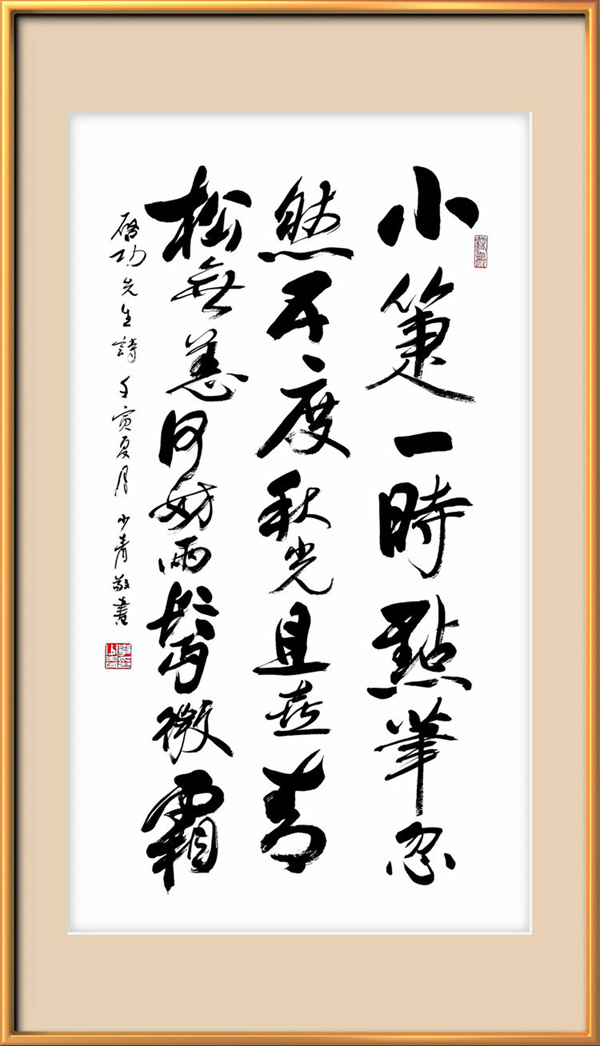 小箑一時點筆忽
然不度秋光且喜青
松無恙何妨兩鬢微霜
啓功先生詩 壬寅夏月 少青敬書